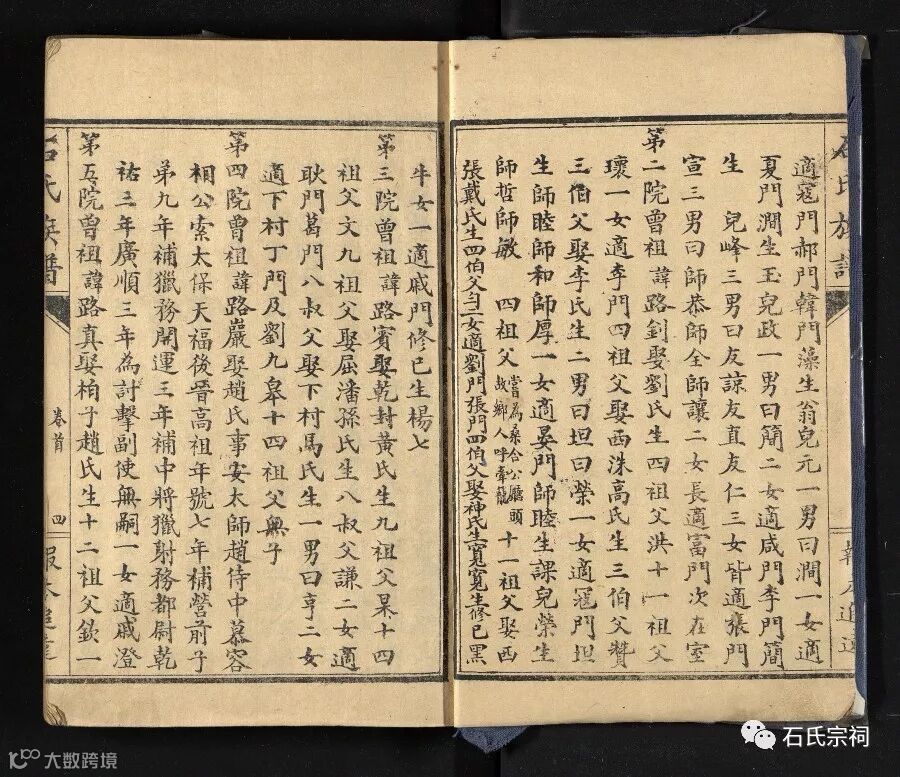 適寇門郝門韓門藻生翁兒元一男曰澗一女適
夏門澗生玉兒政一男曰簡二女適咸門李門簡
生 兒峰三男曰友諒友直友仁三女皆適張門
宣三男曰師恭師全師讓二女長適富門次在室
第二院曾祖諱路釗娶劉氏生四祖父洪十一祖父
瓌一女適李門四祖父娶西洙高氏生三伯父贊
三伯父娶李氏生二男曰坦曰榮一女適寇門坦
生師睦師和師厚一女適晏門師睦生課兒榮生
師哲師敏 四祖父嘗為桑合公廳頭故鄉人呼牽龍 十一祖父娶西
張戴氏生四伯父 二女適劉門張門四伯父娶神氏生寬寬生修已黑
牛女一適戚門修已生楊七
第三院曾祖諱路賓娶乾封黃氏生九祖父杲十四
祖父文九祖父娶屈潘孫氏生八叔父謙二女適
耿門葛門八叔父娶下村馬氏生一男曰亨二女
適下村丁門及劉九皋十四祖父無子
第四院曾祖諱路巖娶趙氏事安太師趙侍中慕容
相公索太保天福後晉高祖年號七年補營前子
弟九年補獵務開運三年補中將獵射務都尉乾
祐三年廣順三年為討擊副使無嗣一女適戚澄
第五院曾祖諱路真娶柏子趙氏生十二祖父欽一
石氏族譜
卷首
四
報本追遠
石氏族譜
報本追遠
石氏宗祠
大数跨境